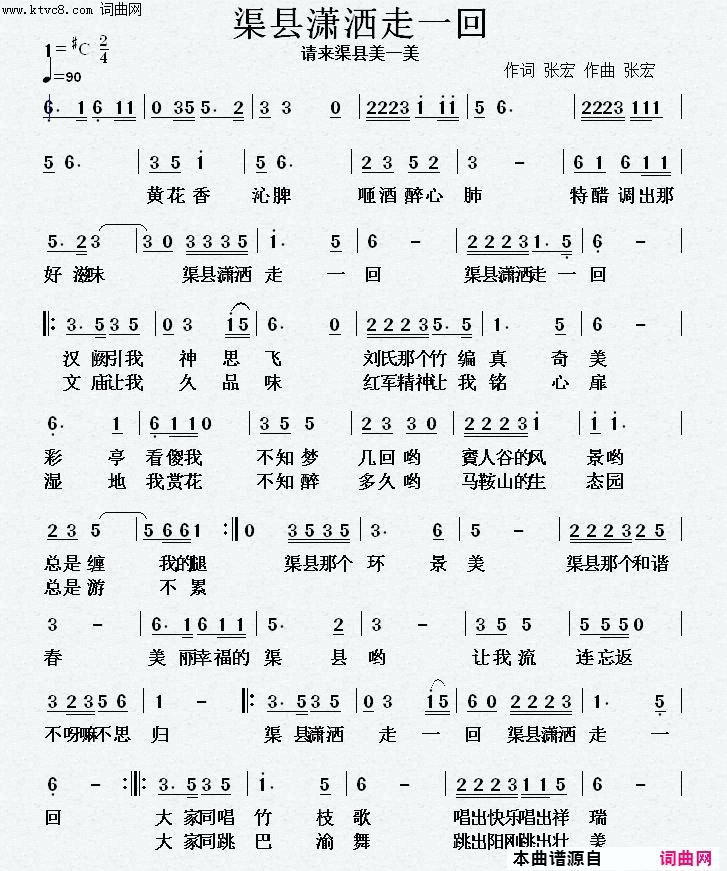 www.ktvc8.com 词曲网
渠县潇洒走一回
请来渠县美一美
1=#C 2/4
♩=90
作词 张宏 作曲 张宏
6. 1 6 1 1 | 0 3 5 5. 2 | 3 3 0 | 2 2 2 3 i i i | 5 6. | 2 2 2 3 1 1 1 |
5 6. | 3 5 i | 5 6. | 2 3 5 2 | 3 - | 6 1 6 1 1 |
黄花香 沁脾 咂酒醉心 肺 特醋 调出那
5. 2 3 | 3 0 3 3 3 5 | 1. 5 | 6 - | 2 2 2 3 1. 5 | 6 - |
好滋味 渠县潇洒 走 一 回 渠县潇洒走一回
‖: 3. 5 3 5 | 0 3 i 5 | 6. 0 | 2 2 2 3 5. 5 | 1. 5 | 6 - |
汉阙引我 神 思 飞 刘氏那个竹 编 真 奇 美
文庙让我 久 品 味 红军精神让 我 铭 心 扉
6. 1 | 6 1 1 0 | 3 5 5 | 2 3 3 0 | 2 2 2 3 i | i i. |
彩 亭 看傻我 不知梦 几回哟 賨人谷的风 景哟
湿 地 我赏花 不知醉 多久哟 马鞍山的生 态园
2 3 5 | 5 6 6 1 :‖ 0 3 5 3 5 | 3. 6 | 3 - | 3 2 2 3 2 5 |
总是缠 我的腿 渠县那个 环 景 美 渠县那个和谐
总是游 不 累
3 - | 6. 1 6 1 1 | 5. 2 | 3 - | 3 5 5 | 5 5 5 0 |
春 美 丽幸福的 渠 县哟 让我流 连忘返
3 2 3 5 6 | 1 - ‖: 3. 5 3 5 | 0 3 i 5 | 6 0 3 2 3 5 | 1. 5 |
不呀嘛不思 归 渠 县潇洒 走 一 回 渠县潇洒 走 一
6 - :‖: 3. 5 3 5 | i. 5 | 6 - | 2 2 2 3 1 1 5 | 6 - |
回 大 家同唱 竹 枝 歌 唱出快乐唱出祥 瑞
大 家同跳 巴 渝 舞 跳出阳刚跳出壮 美
本曲谱源自 词曲网